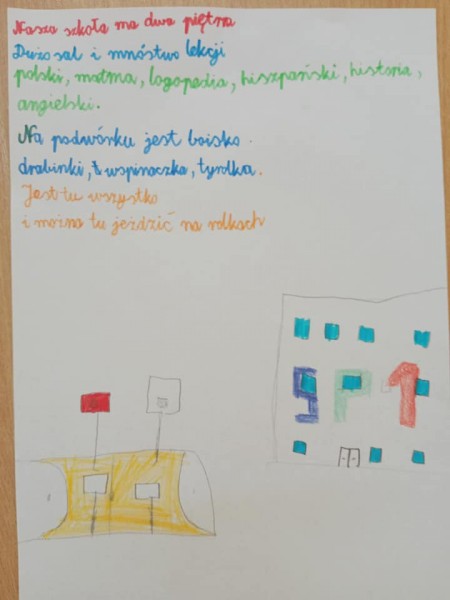 Nasza szkoła ma dwa piętra
Dużo sal i mnóstwo lekcji
polski, matma, logopedia, hiszpański, historia,
angielski.
Na podwórku jest boisko.
drabinki, wspinaczka, tyrolka.
Jest tu wszystko
i można tu jeździć na rolkach
SP1